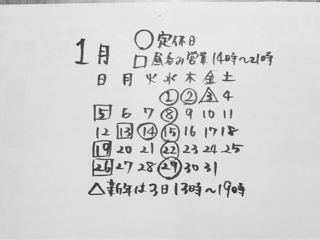 ○定休日
1月 □昼呑み営業14時〜21時
日 月 火 水 木 金 土
① ② 3 4
5 6 7 ⑧ 9 10 11
12 13 ⑭ ⑮ 16 17 18
19 20 21 ㉒ 23 24 25
26 27 28 ㉙ 30 31
△新年は3日13時〜19時